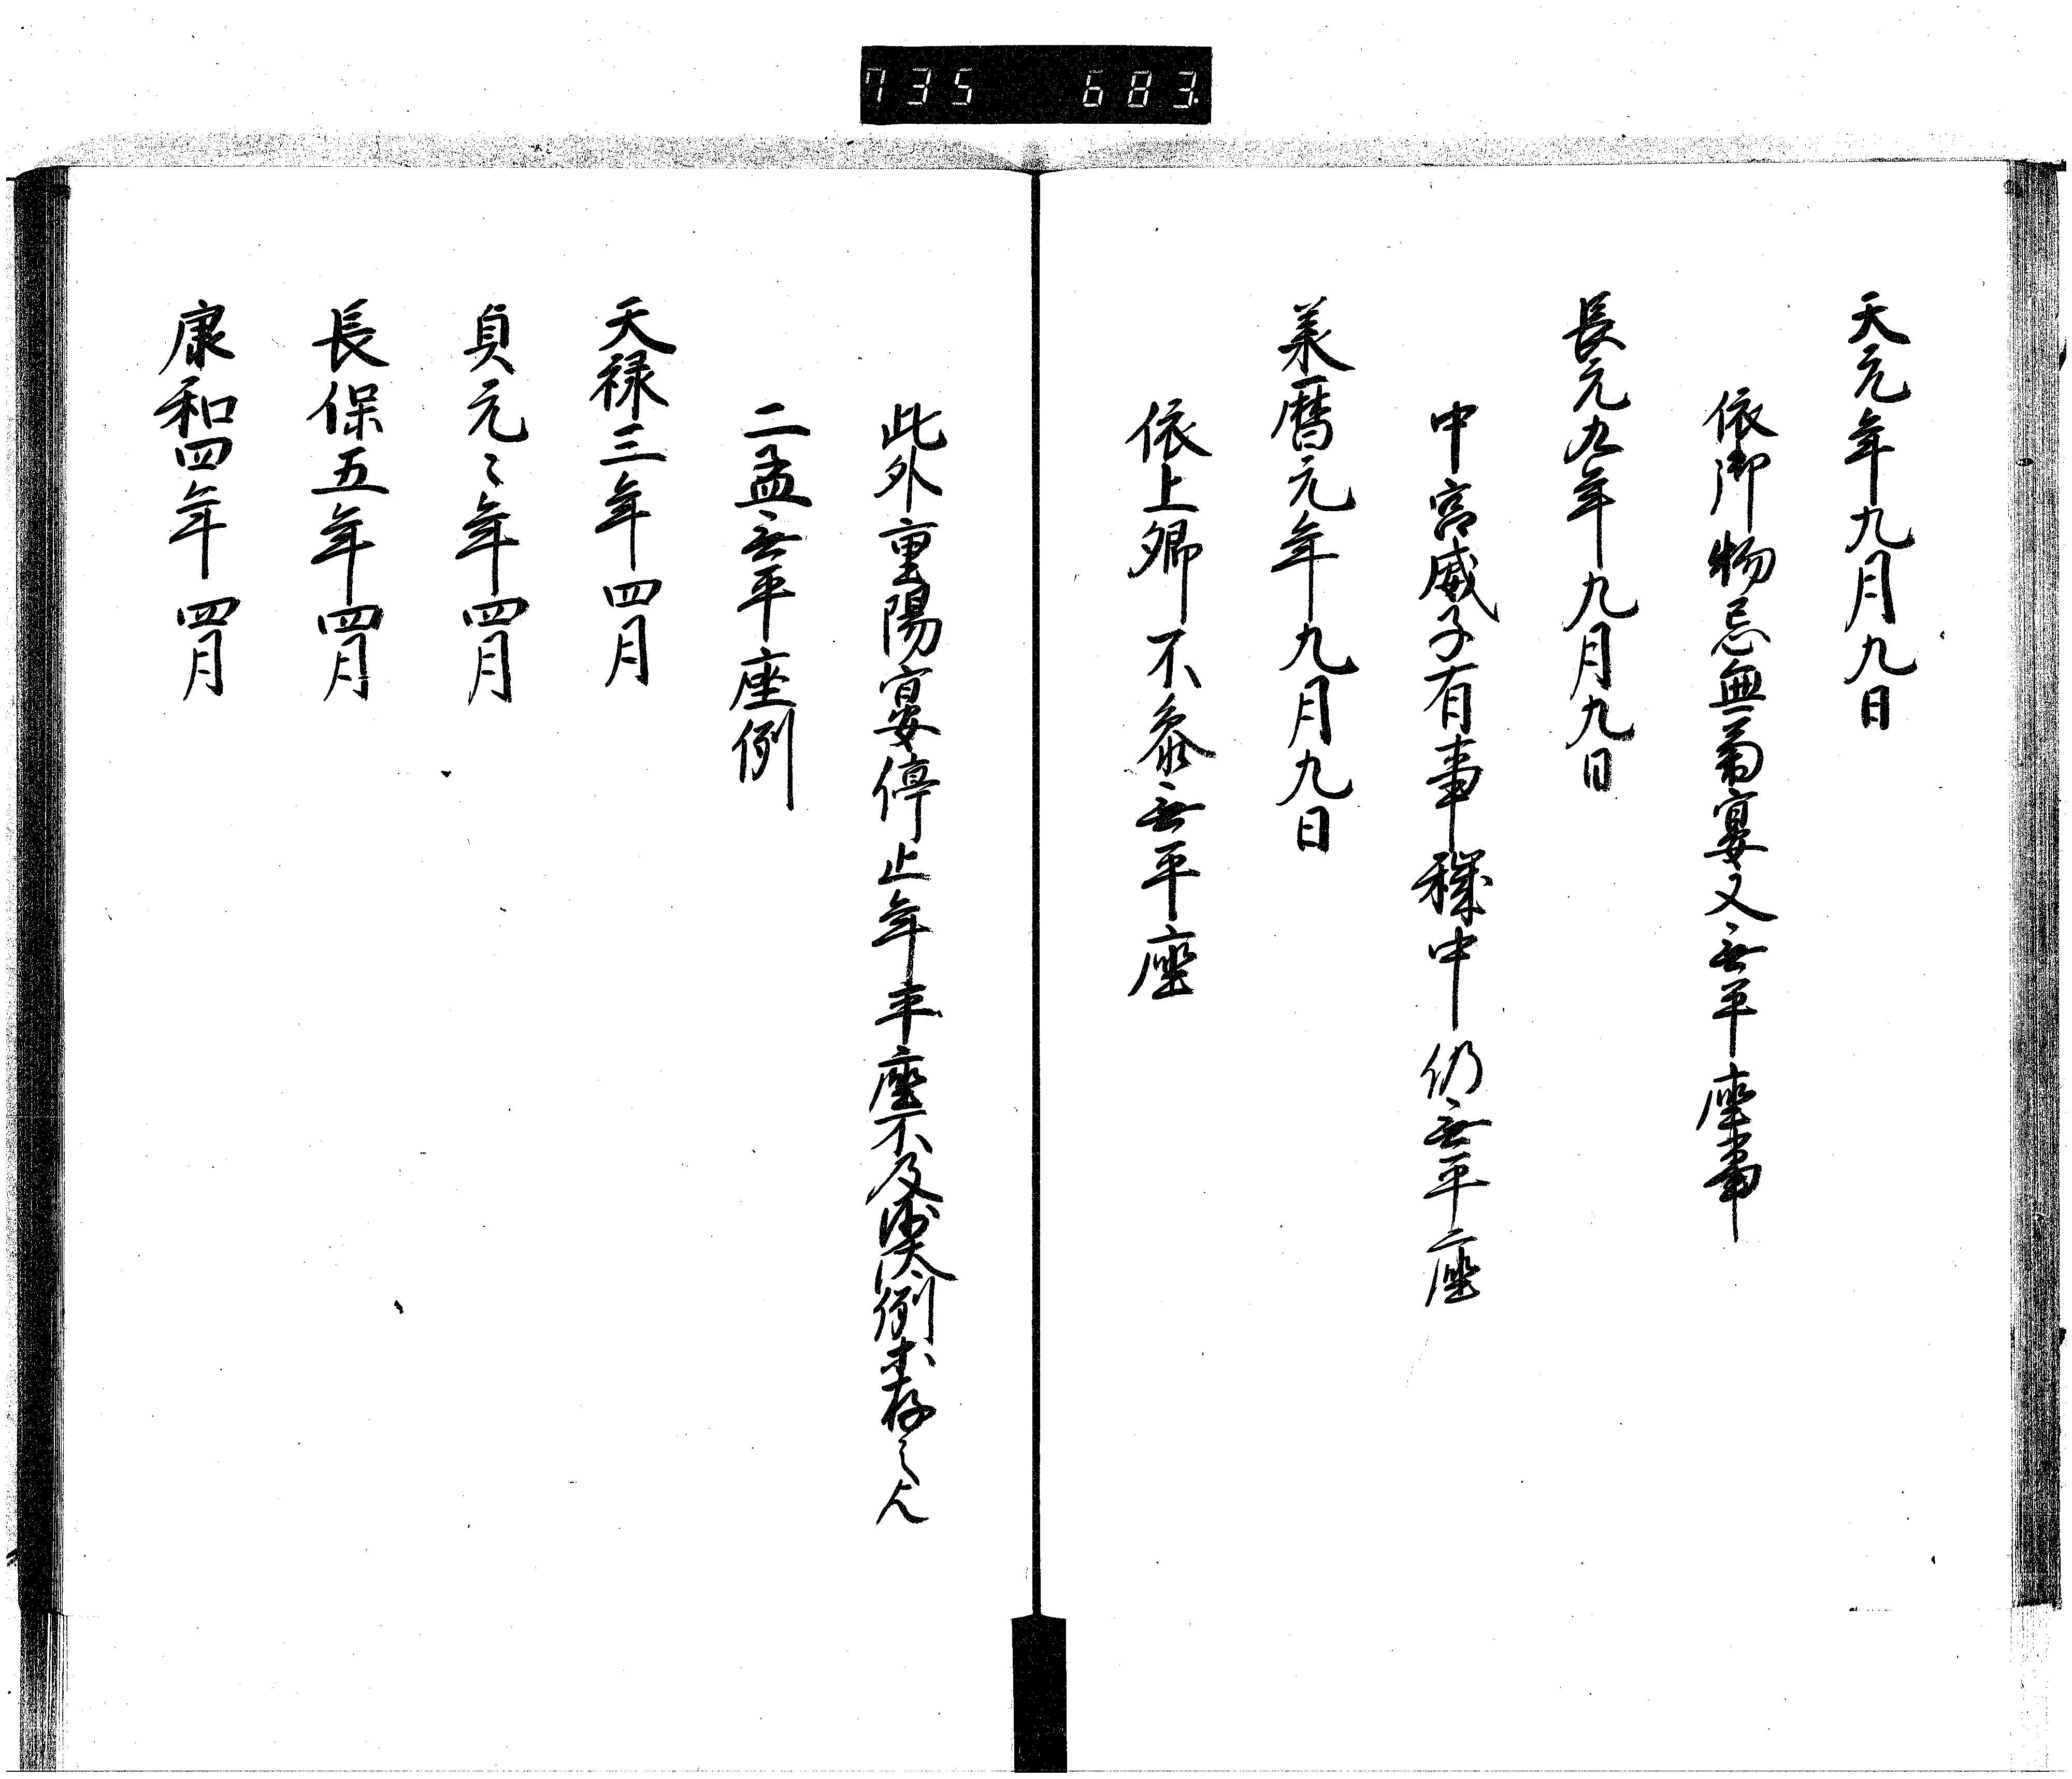 735 683
天元年九月九日
依御物忌無菊宴又無平座事
長元九年九月九日
中宮威子有事穢中仍無平座
承暦元年九月九日
依上卿不参無平座
此外重陽宴停止年平座不及沙汰例等存之欤
二孟無平座例
天禄三年四月
貞元々年四月
長保五年四月
康和四年四月